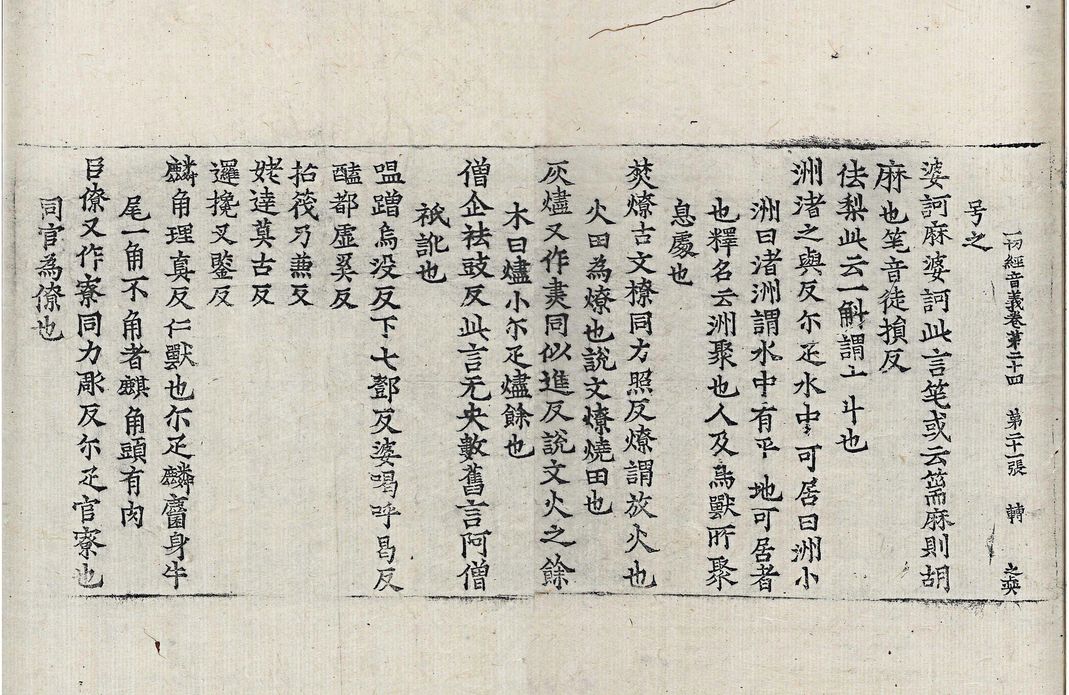 一切經音義卷第二十四　第二十一張　轉　之奭
号之
婆訶麻婆訶此言篅或云篅麻則胡
麻也笔音徒損反
佉梨此云一斛謂十斗也
洲渚之與反尒疋水中可居曰洲小
洲曰渚洲謂水中有平地可居者
也釋名云洲聚也人及鳥獸所聚
息處也
焚燎古文尞同力照反燎謂放火也
火田為燎也說文燎燒田也
灰燼又作㶳同似進反說文火之餘
木曰燼小尒疋燼餘也
僧企祛豉反此言无央數舊言阿僧
祇訛也
嗢蹭烏没反下七鄧反婆喝呼曷反
醯都虛奚反
拈筏乃兼反
姥達莫古反
邏攙叉鑒反
麟角理真反仁獸也尒疋麟麕身牛
尾一角不角者麒角頭有肉
臣僚又作寮同力彫反尒疋官寮也
同官為僚也